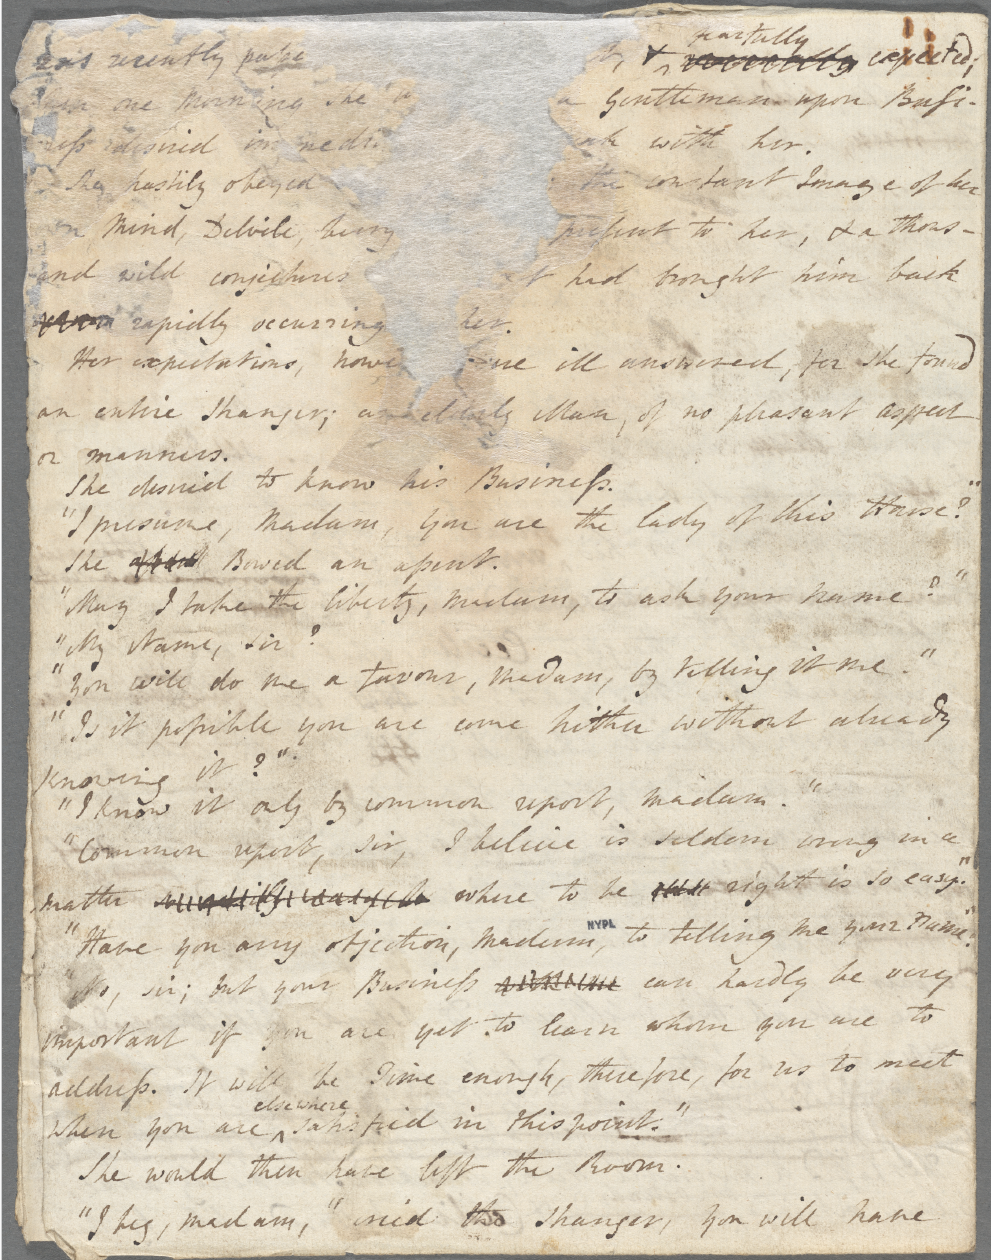 was recently
&
fearfully
expected;
one Morning she
a Gentleman upon Busi-
ness desired
with her.
She hastily obeyed
the constant Image of her
own Mind, Delvile, being
present to her, & a thous-
and wild conjectures
had brought him back
rapidly occurring
her.
Her expectations, howe
were ill answered, for she found
an entire stranger; an elderly Man, of no pleasant aspect
or manners.
She desired to know his Business.
"I presume, Madam, you are the lady of this House?"
She Bowed an assent.
"May I take the liberty, Madam, to ask your name?"
"My Name, Sir?
"You will do me a favour, Madam, by telling it me."
"Is it possible you are come hither without already
knowing it?"
"I know it only by common report, madam."
"Common report, Sir, I believe is seldom wrong in a
matter where to be right is so easy."
"Have you any objection, Madam, to telling me your Name?"
NYPL
"No, sir; but your Business can hardly be very
important if you are yet to learn whom you are to
address. It will be Time enough, therefore, for us to meet
elsewhere
when you are satisfied in this point."
She would then have left the Room.
"I beg, madam," cried the Stranger, you will have